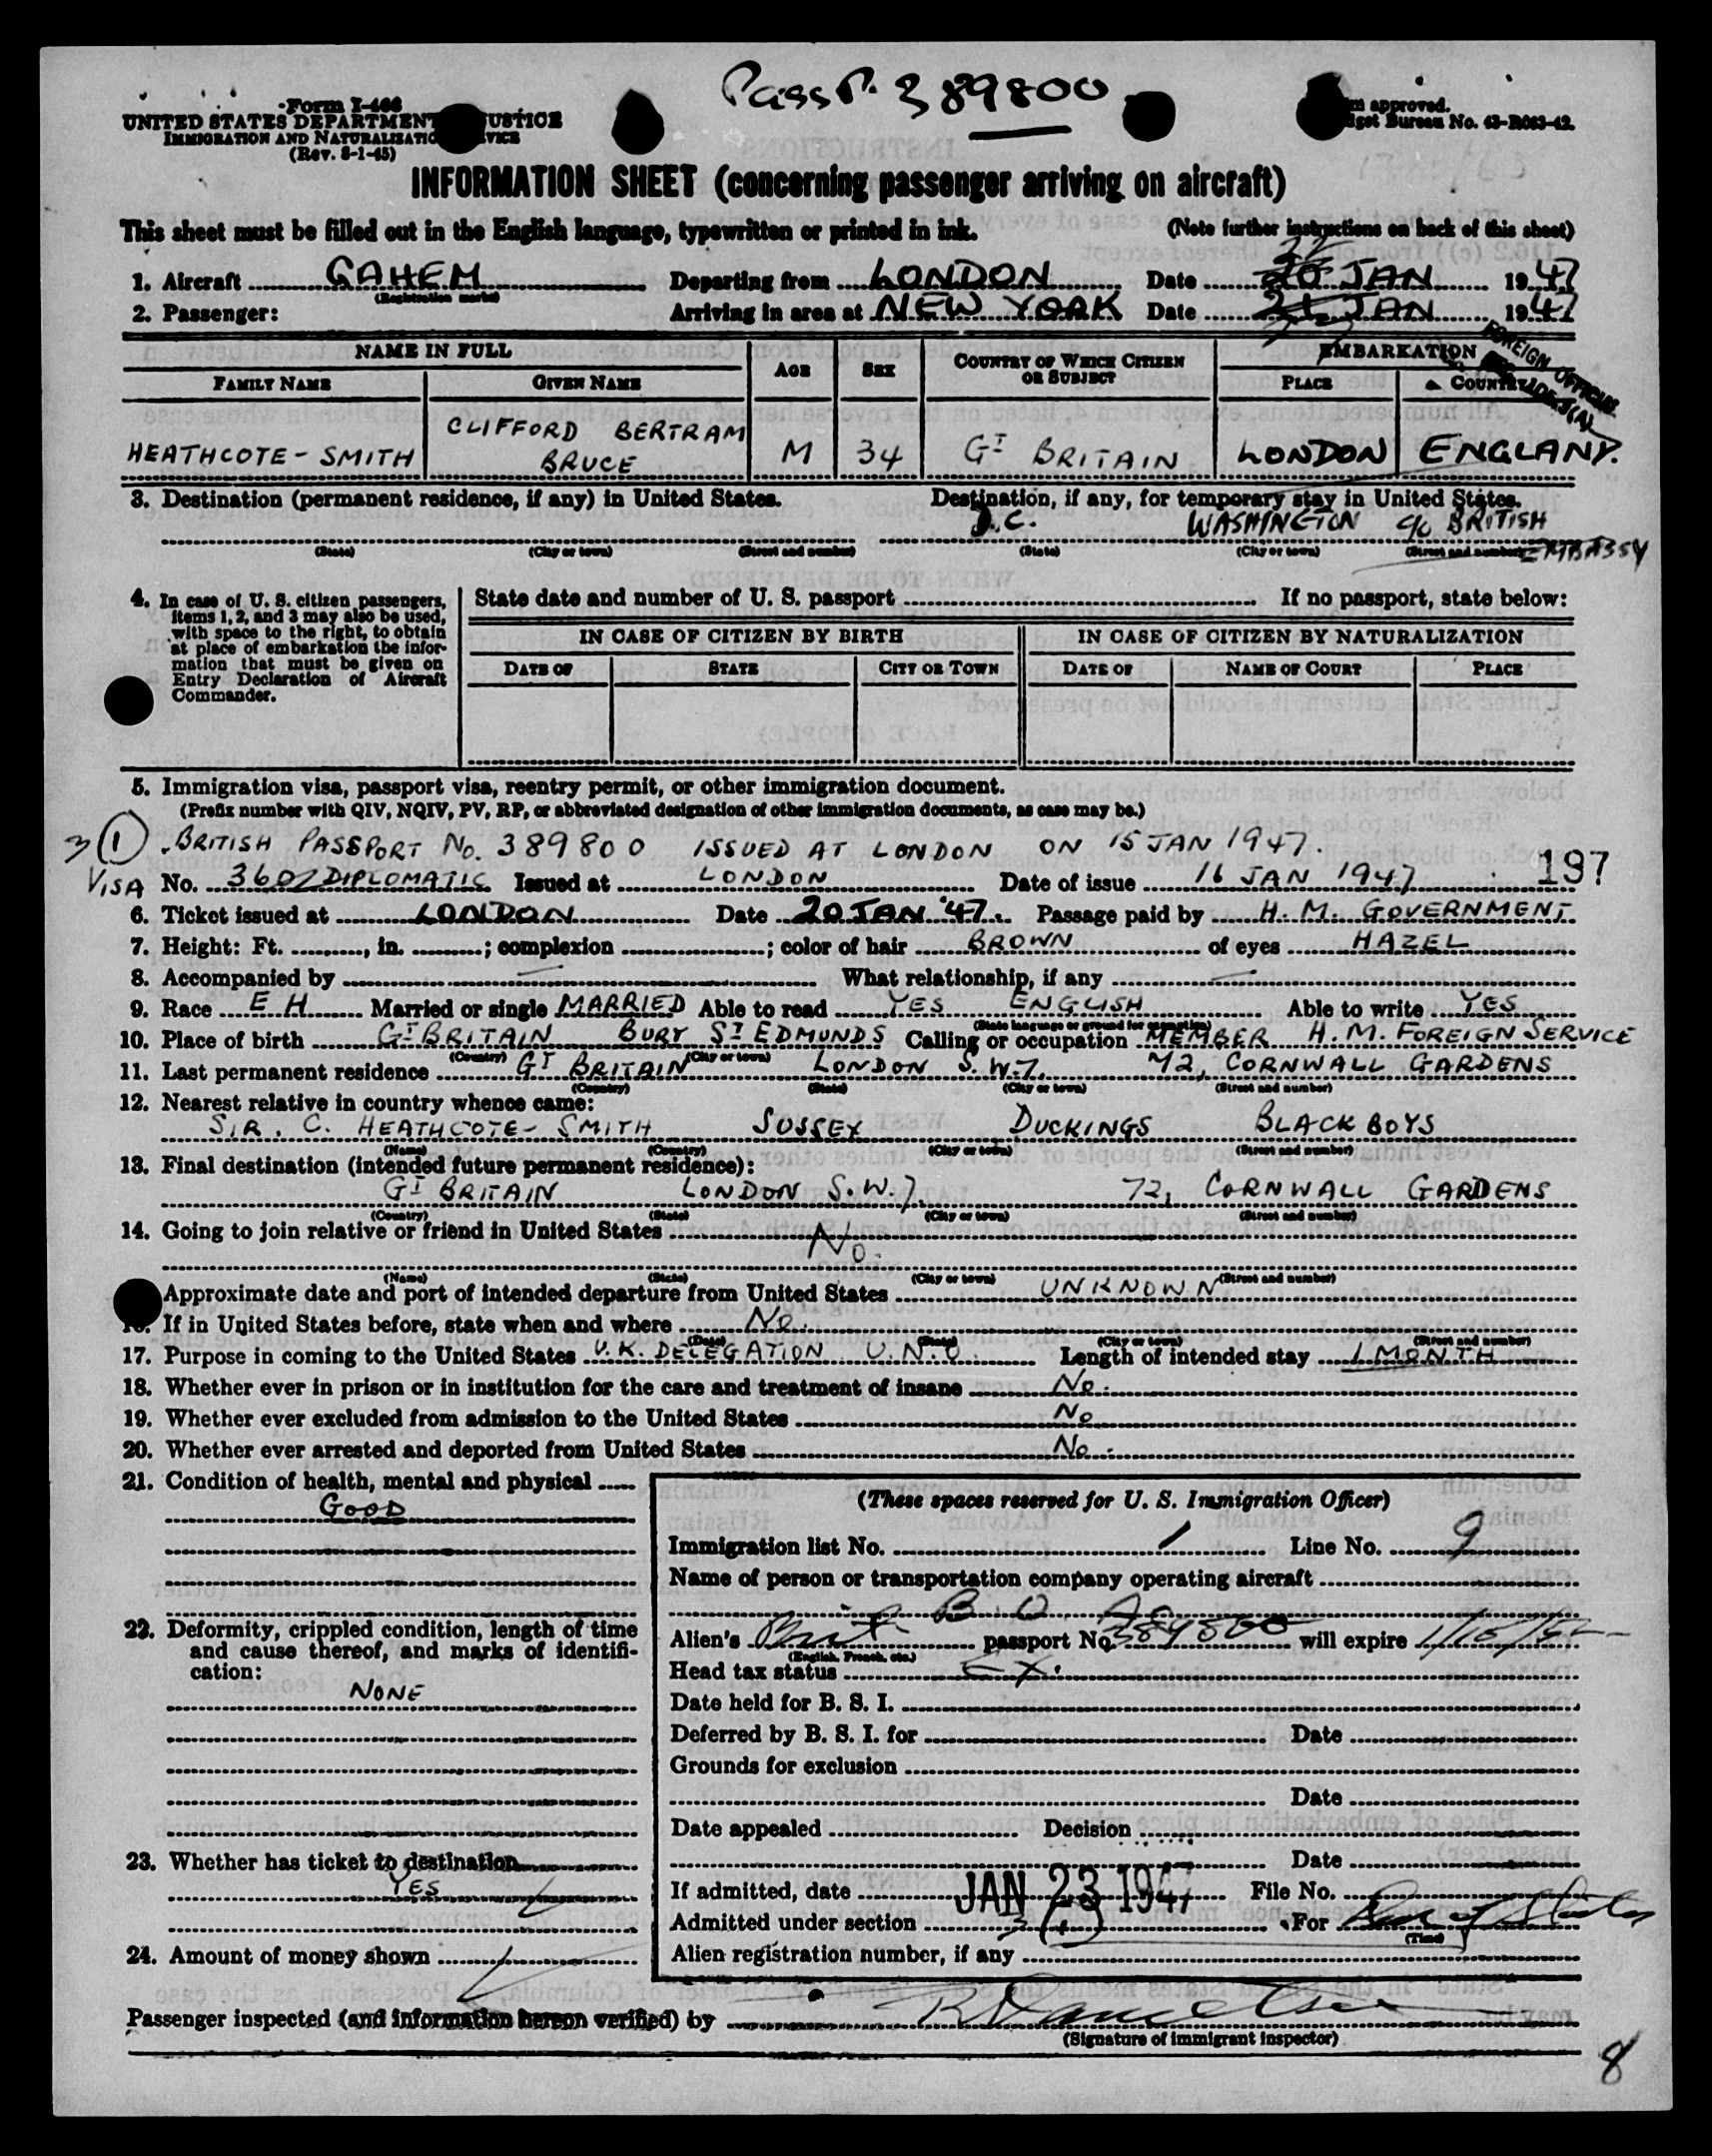 PassP. 389800
Form I-466
UNITED STATES DEPARTMENT JUSTICE
IMMIGRATION AND NATURALIZATIO VICE
(Rev. 8-1-45)
m approved.
dget Bureau No. 43-R063-42.
INFORMATION SHEET (concerning passenger arriving on aircraft)
This sheet must be filled out in the English language, typewritten or printed in ink. (Note further instructions on back of this sheet)
1. Aircraft GAHEM Departing from LONDON Date 20 JAN 1947
(Registration marks)
2. Passenger: Arriving in area at NEW YORK Date 21 JAN 1947
FOREIGN OFFICIAL
NAME IN FULL AGE SEX COUNTRY OF WHICH CITIZEN OR SUBJECT EMBARKATION
FAMILY NAME GIVEN NAME PLACE COUNTRY
HEATHCOTE-SMITH CLIFFORD BERTRAM BRUCE M 34 GT BRITAIN LONDON ENGLAND.
3. Destination (permanent residence, if any) in United States. Destination, if any, for temporary stay in United States.
D.C. WASHINGTON c/o BRITISH EMBASSY
(State) (City or town) (Street and number) (State) (City or town) (Street and number)
4. In case of U. S. citizen passengers, items 1, 2, and 3 may also be used, with space to the right, to obtain at place of embarkation the information that must be given on Entry Declaration of Aircraft Commander.
State date and number of U. S. passport If no passport, state below:
IN CASE OF CITIZEN BY BIRTH IN CASE OF CITIZEN BY NATURALIZATION
DATE OF STATE CITY OR TOWN DATE OF NAME OF COURT PLACE
5. Immigration visa, passport visa, reentry permit, or other immigration document.
(Prefix number with QIV, NQIV, PV, RP, or abbreviated designation of other immigration documents, as case may be.)
3 (1) BRITISH PASSPORT No. 389800 ISSUED AT LONDON ON 15 JAN 1947.
197
VISA No. 360 DIPLOMATIC Issued at LONDON Date of issue 16 JAN 1947
6. Ticket issued at LONDON Date 20 JAN '47. Passage paid by H. M. GOVERNMENT
7. Height: Ft. , in. ; complexion ; color of hair BROWN of eyes HAZEL
8. Accompanied by — What relationship, if any —
9. Race E H Married or single MARRIED Able to read YES ENGLISH Able to write YES
(State language or ground for exemption)
10. Place of birth GT BRITAIN BURY ST EDMUNDS Calling or occupation MEMBER H. M. FOREIGN SERVICE
(Country) (City or town)
11. Last permanent residence GT BRITAIN LONDON S.W.7. 72, CORNWALL GARDENS
(Country) (State) (City or town) (Street and number)
12. Nearest relative in country whence came:
SIR. C. HEATHCOTE-SMITH SUSSEX DUCKINGS BLACKBOYS
(Name) (Country) (City or town) (Street and number)
13. Final destination (intended future permanent residence):
GT BRITAIN LONDON S.W.7. 72, CORNWALL GARDENS
(Country) (State) (City or town) (Street and number)
14. Going to join relative or friend in United States No.
(Name) (State) (City or town) (Street and number)
Approximate date and port of intended departure from United States UNKNOWN
16. If in United States before, state when and where No.
(Date) (State) (City or town) (Street and number)
17. Purpose in coming to the United States U.K. DELEGATION U.N.O. Length of intended stay 1 MONTH
18. Whether ever in prison or in institution for the care and treatment of insane No.
19. Whether ever excluded from admission to the United States No
20. Whether ever arrested and deported from United States No.
21. Condition of health, mental and physical
GOOD
22. Deformity, crippled condition, length of time and cause thereof, and marks of identification:
NONE
23. Whether has ticket to destination
YES
24. Amount of money shown
(These spaces reserved for U. S. Immigration Officer)
Immigration list No. 1 Line No. 9
Name of person or transportation company operating aircraft
B. O. A. C.
Alien's Brit passport No. 389800 will expire 1/15/52
(English, French, etc.)
Head tax status Ex.
Date held for B. S. I.
Deferred by B. S. I. for Date
Grounds for exclusion
Date
Date appealed Decision
Date
If admitted, date JAN 23 1947 File No.
Admitted under section 3(1) For
(Time)
Alien registration number, if any
Passenger inspected (and information hereon verified) by
(Signature of immigrant inspector)
8